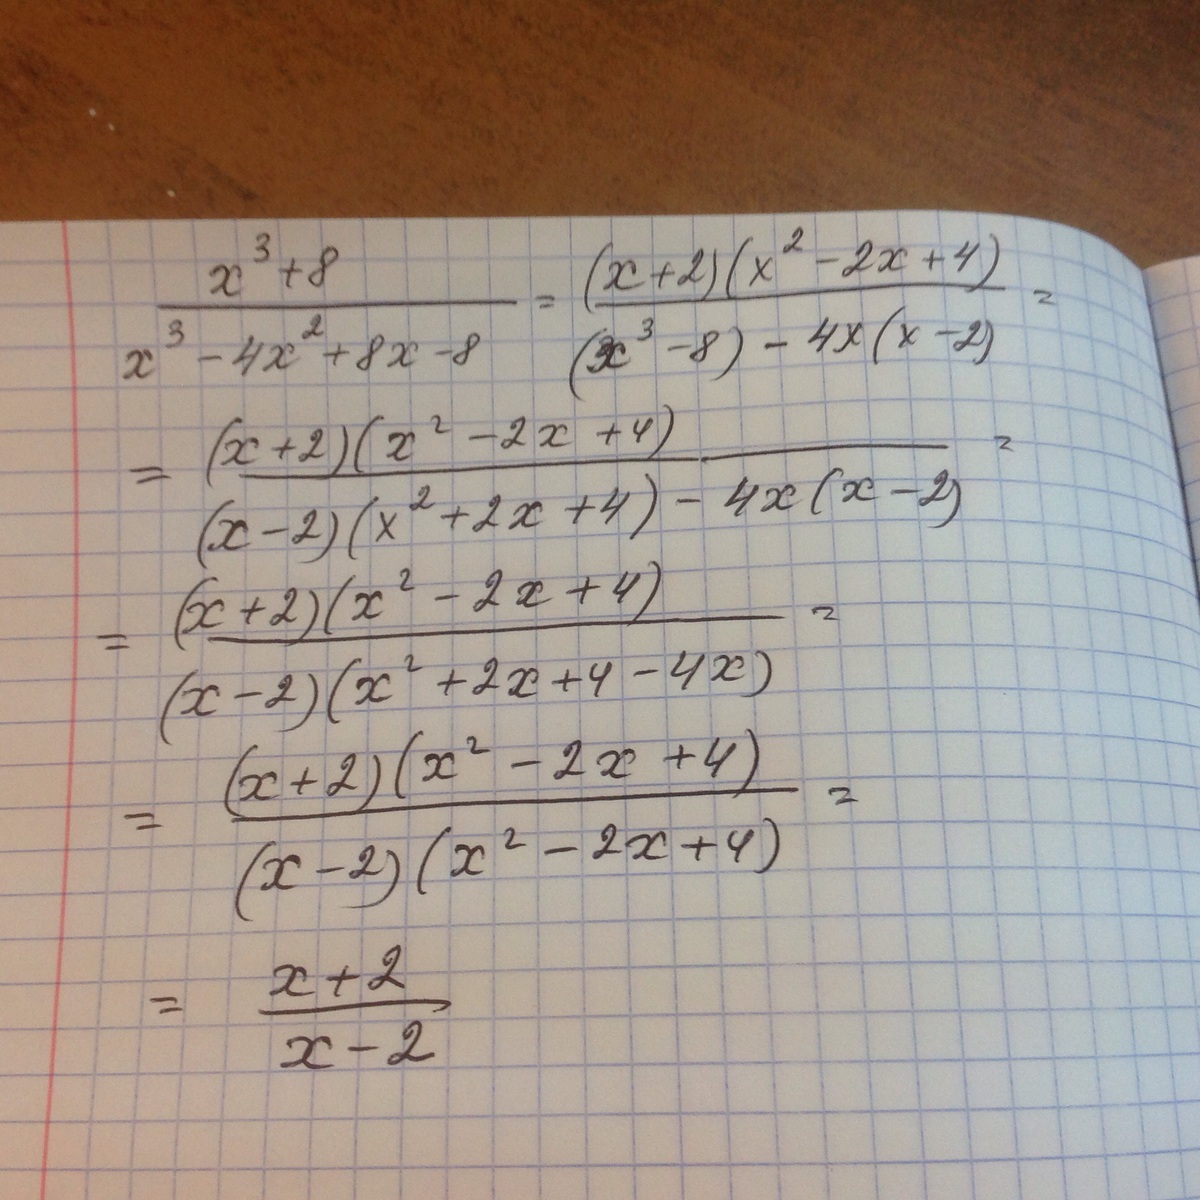 x³+8 / x³-4x²+8x-8 = (x+2)(x²-2x+4) / (x³-8)-4x(x-2) =
= (x+2)(x²-2x+4) / (x-2)(x²+2x+4)-4x(x-2) =
= (x+2)(x²-2x+4) / (x-2)(x²+2x+4-4x) =
= (x+2)(x²-2x+4) / (x-2)(x²-2x+4) =
= x+2 / x-2